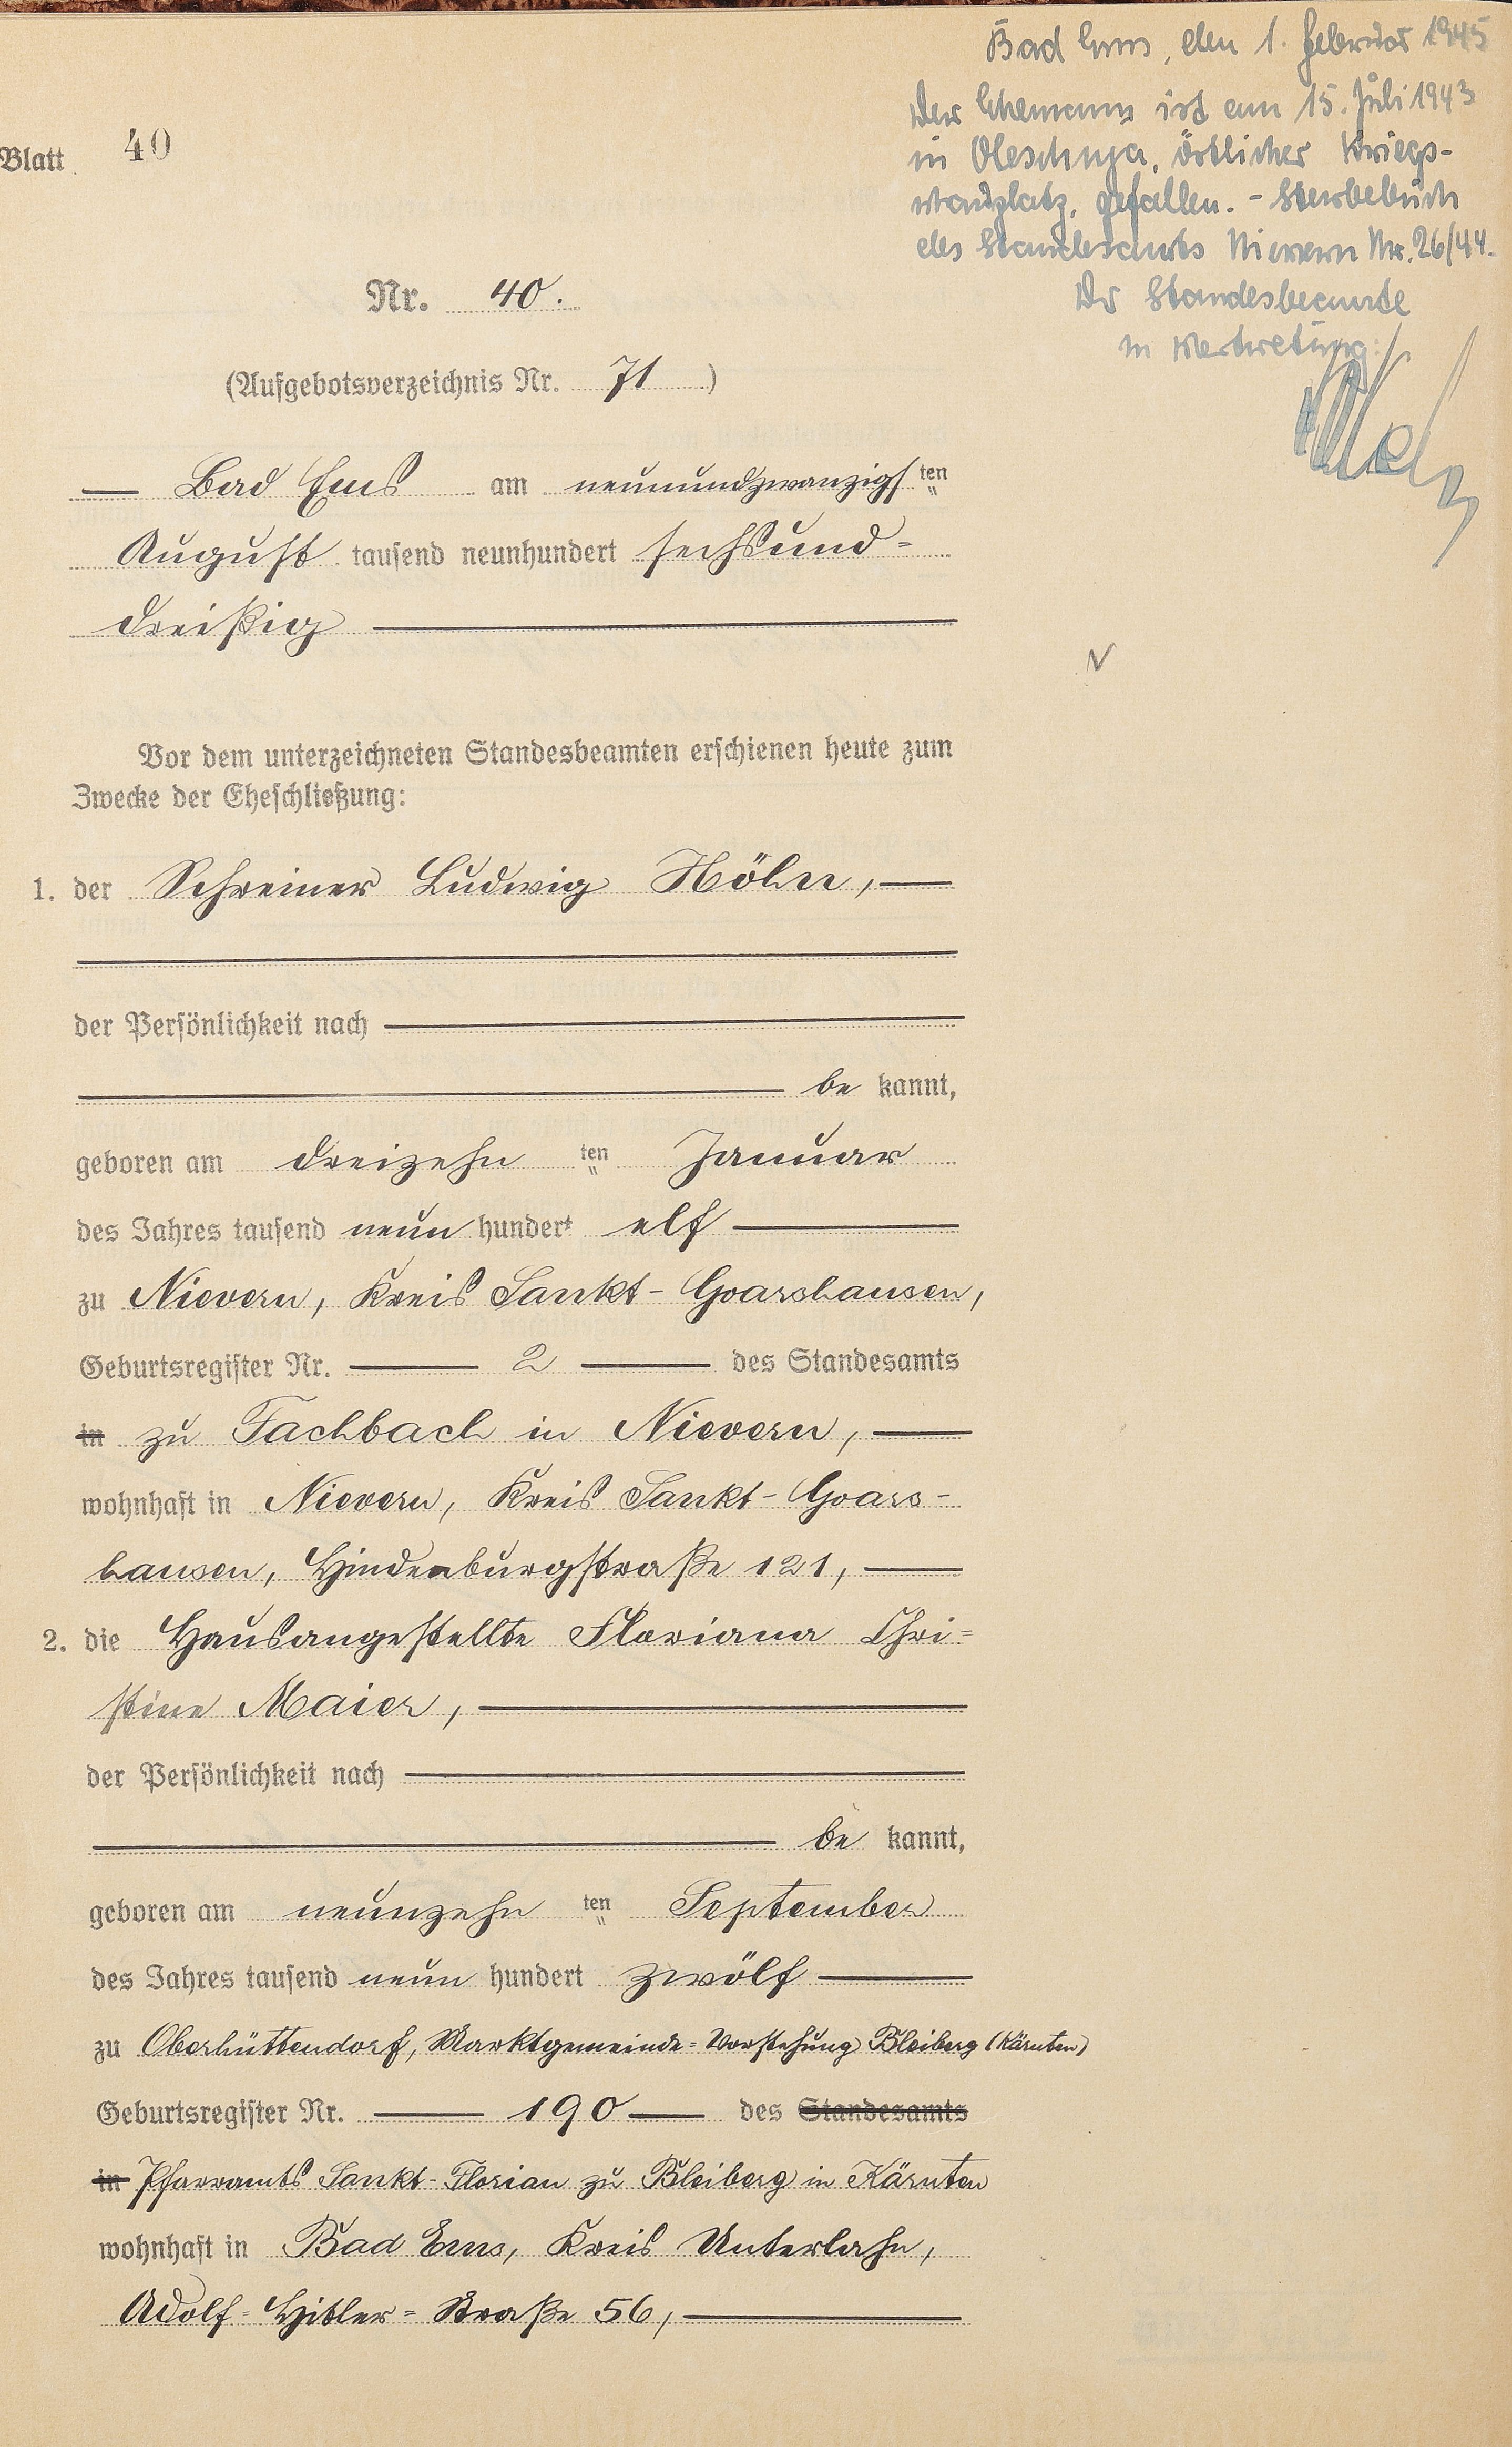 Bad Ems, den 1. Februar 1945
Der Ehemann ist am 15. Juli 1943
in Oleschnja, östlicher Kriegs-
schauplatz, gefallen. - Sterbebuch
des Standesamts Nievern Nr. 26/44.
Der Standesbeamte
in Vertretung:
Blatt 40
Nr. 40.
(Aufgebotsverzeichnis Nr. 71)
Bad Ems am neunundzwanzigsten
August tausend neunhundert sechsund=
dreißig
Vor dem unterzeichneten Standesbeamten erschienen heute zum
Zwecke der Eheschließung:
1. der Schreiner Ludwig Höhn,
der Persönlichkeit nach
be kannt,
geboren am dreizehn ten Januar
des Jahres tausend neun hundert elf
zu Nievern, Kreis Sankt-Goarshausen,
Geburtsregister Nr. 2 des Standesamts
in zu Fachbach in Nievern,
wohnhaft in Nievern, Kreis Sankt-Goars-
hausen, Hindenburgstraße 121,
2. die Hausangestellte Floriana Chri=
stine Maier,
der Persönlichkeit nach
be kannt,
geboren am neunzehn ten September
des Jahres tausend neun hundert zwölf
zu Oberhüttendorf, Marktgemeinde=Vorstehung Bleiberg (Kärnten)
Geburtsregister Nr. 190 des Standesamts
in Pfarramts Sankt-Florian zu Bleiberg in Kärnten
wohnhaft in Bad Ems, Kreis Unterlahn,
Adolf=Hitler=Straße 56,